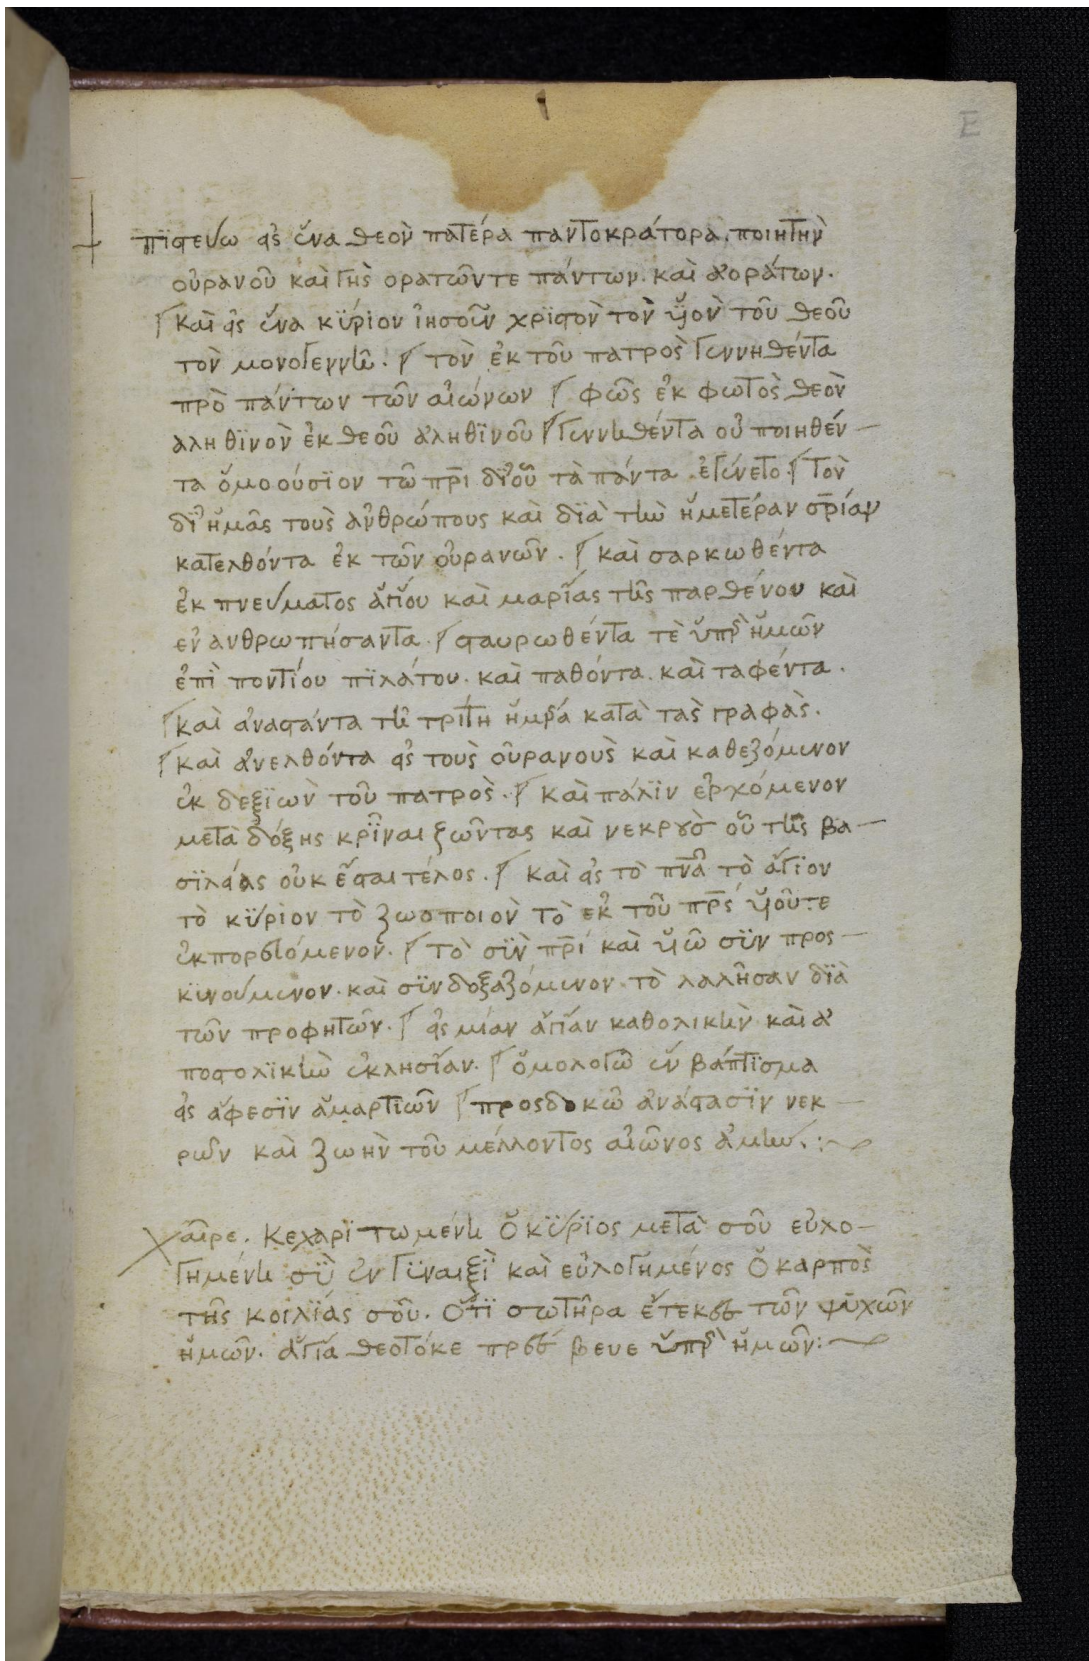 πϊστεύω εἰς ἕνα θεὸν πατέρα παντοκράτορα, ποιητὴν
οὐρανοῦ καὶ γῆς ορατῶντε πάντων. καὶ ἀοράτων.
Καὶ εἰς ἕνα κΰριον ἰησοῦν χρϊστὸν τὸν ϋἱὸν τοῦ θεοῦ
τὸν μονογεννῆ. τὸν ἐκ τοῦ πατρὸς γεννηθέντα
πρὸ πάντων τῶν αἰώνων φῶς ἐκ φωτὸς θεὸν
αληθϊνὸν ἐκ θεοῦ ἀληθϊνοῦ γεννηθέντα οὐ ποιηθέν
τα ὅμοούσϊον τῶ πρι δϊ οὗ τὰ πάντα ἐγένετο. τὸν
δϊ ἡμᾶς τοὺς ἀνθρώπους καὶ δϊὰ τὴν ἡμετέραν σρίαν
κατελθόντα ἐκ τῶν οὐρανῶν. καὶ σαρκωθέντα
ἐκ πνεύματος ἁγίου καὶ μαρίας τῆς παρθένου καὶ
ενανθρωπήσαντα. σταυρωθέντα τὲ ὑπὲρ ἡμῶν
ἐπὶ ποντίου πϊλάτου. καὶ παθόντα. καὶ ταφέντα.
καὶ ἀναστάντα τῆ τρίτη ἡμέρα κατὰ τὰς γραφὰς.
καὶ ἀνελθόντα εἰς τοὺς οὐρανοὺς καὶ καθεζόμενον
ἐκ δεξϊων τοῦ πατρὸς. καὶ πάλϊν ἐρχόμενον
μετὰ δόξης κρῖναι ζῶντας καὶ νεκροὺς οὗ τῆς βα
σϊλείας οὐκ ἔσται τέλος. καὶ εἰς τὸ πνᾶ τὸ ἅγϊον
τὸ κΰριον τὸ ζωοποιὸν τὸ ἐκ τοῦ πρς ϋἱοῦτε
ἐκπορευόμενον. τὸ σϋν πρι καὶ ϋἱῶ σϋν προς
κϋνούμενον. καὶ σϋνδοξαζόμενον. τὸ λαλῆσαν δϊὰ
τῶν προφητῶν. εἰς μίαν ἁγίαν καθολικὴν καὶ ἀ
ποστολϊκὴν ἐκλησίαν. ὅμολογῶ ἓν βάπτϊσμα
εἰς ἄφεσϊν ἁμαρτιῶν προσδοκῶ ἀνάστασϊν νεκ
ρῶν καὶ ζωὴν τοῦ μέλλοντος αἰῶνος ἀμήν.:
χαῖρε. Κεχαρϊτωμένη ὁ κΰρϊος μετὰ σοῦ εὐλο
γημένη σῢ ἐν γϋναιξὶ καὶ εὐλογημένος ὁ καρπὸς
τῆς κοιλϊάς σοῦ. ὅτϊ σωτῆρα ἔτεκες τῶν ψϋχῶν
ἡμῶν. ἁγία θεοτόκε πρέσβευε ὑπὲρ ἡμῶν: